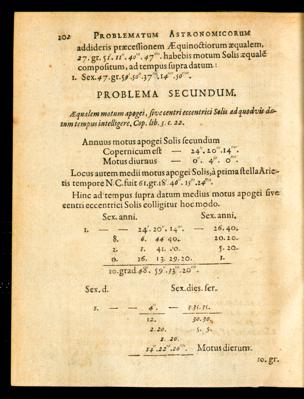 202 PROBLEMATUM ASTRONOMICORUM
addideris præcessionem Æquinoctiorum æqualem,
27. gr. 51.' 11.'' 40.''' 47.'''' habebis motum Solis æqualē
compositum, ad tempus supra datum:
1. Sex. 47. gr. 59.' 50.'' 37.''' 14.'''' 50.'''''
PROBLEMA SECUNDUM,
Æqualem motum apogei, sive centri eccentrici Solis ad quodvis da-
tum tempus intelligere, Cop. lib. 3. c. 22.
Annuus motus apogei Solis secundum
Copernicum est — 24.'' 20.''' 14.''''
Motus diurnus — 0.'' 4.''' 0.''''
Locus autem medii motus apogei Solis, à prima stella Arie-
tis tempore N. C. fuit 61. gr. 18.' 46.'' 15.''' 24.''''
Hinc ad tempus supra datum medius motus apogei sive
centri eccentrici Solis colligitur hoc modo.
Sex. anni. Sex. anni.
1. — — 24.' 20.'' 14.''' — 26. 40.
8. 6. 44 40. 20. 20.
2. 1. 41. 0. 5. 20.
0. 16. 13. 29. 20. 1.
10. grad 48.' 59.'' 13.''' 20.''''
Sex. d. Sex. dies. ser.
1. — — 4.'' — 1. 31. 31.
12. 30. 30.
2. 20. 5. 5.
1. 20.
14.'' 22.''' 20.'''' Motus dierum.
10. gr.